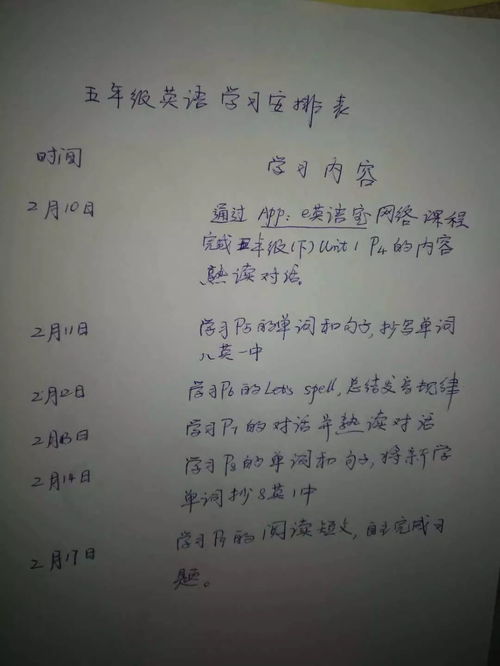 五年级英语学习安排表
时间 学习内容
2月10日 通过App:e英语宝网络课程
完成五年级(下)Unit 1 P4的内容
熟读对话。
2月11日 学习P5的单词和句子,抄写单词
八英一中
2月12日 学习P6的Let's spell,总结发音规律
2月13日 学习P7的对话并熟读对话
2月14日 学习P8的单词和句子,将新学
单词抄8英1中
2月17日 学习P9的阅读短文,自主完成习
题。